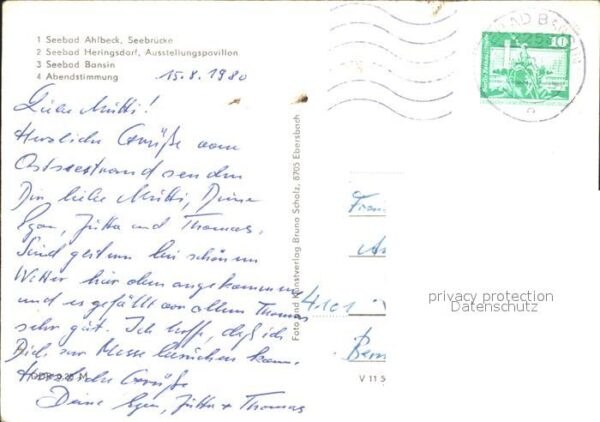 1 Seebad Ahlbeck, Seebrücke
2 Seebad Heringsdorf, Ausstellungspavillon
3 Seebad Bansin
4 Abendstimmung
15.8.1980
Liebe Mutti!
Herzliche Grüße vom
Ostseestrand senden
Dir liebe Mutti, Deine
Egon, Jutta und Thomas.
Sind gestern bei schönem
Wetter hier oben angekommen
und es gefällt vor allem Thomas
sehr gut. Ich hoffe, daß ich
Dich zur Messe besuchen kann.
Herzliche Grüße
Deine Egon, Jutta + Thomas
Foto und Kunstverlag Bruno Scholz, 8705 Ebersbach
BAD BANSIN
10
Frau
4101
Bern
V 11 5
privacy protection
Datenschutz